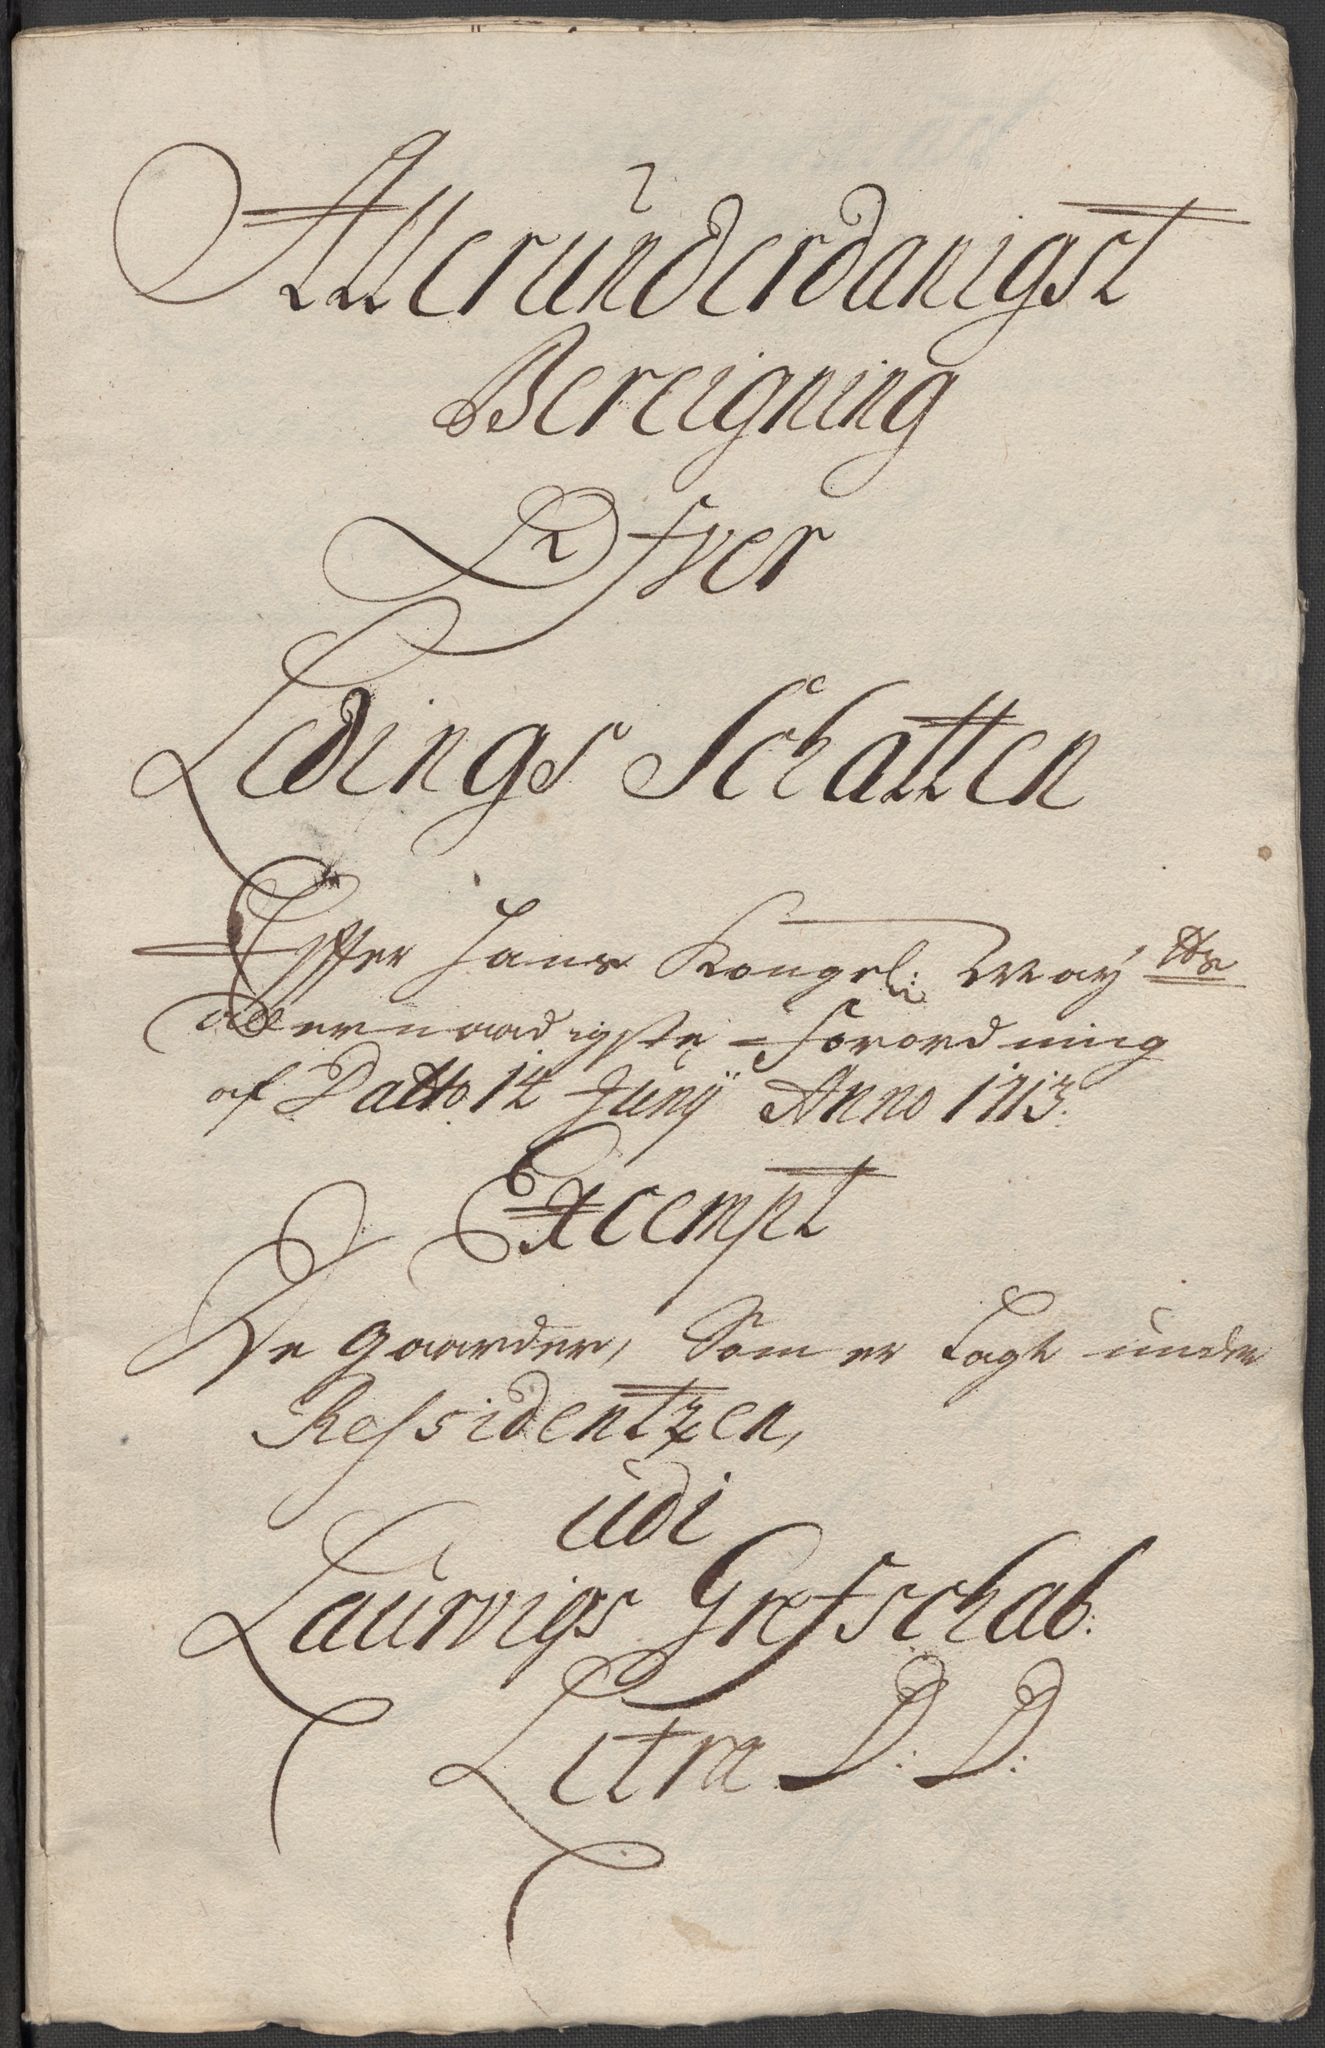 Alleründerdanigst
Bereigning
Ofver
Ledings Schatten
Efter Hans Kongel: May tts
allernaadigste Forordning
af Datto 14 Junÿ Anno 1713.
Excempt
De gaarder, Som er Lagt under
Ressidentzen,
udi
Laurvigs Grefschab:
Litra D: D: